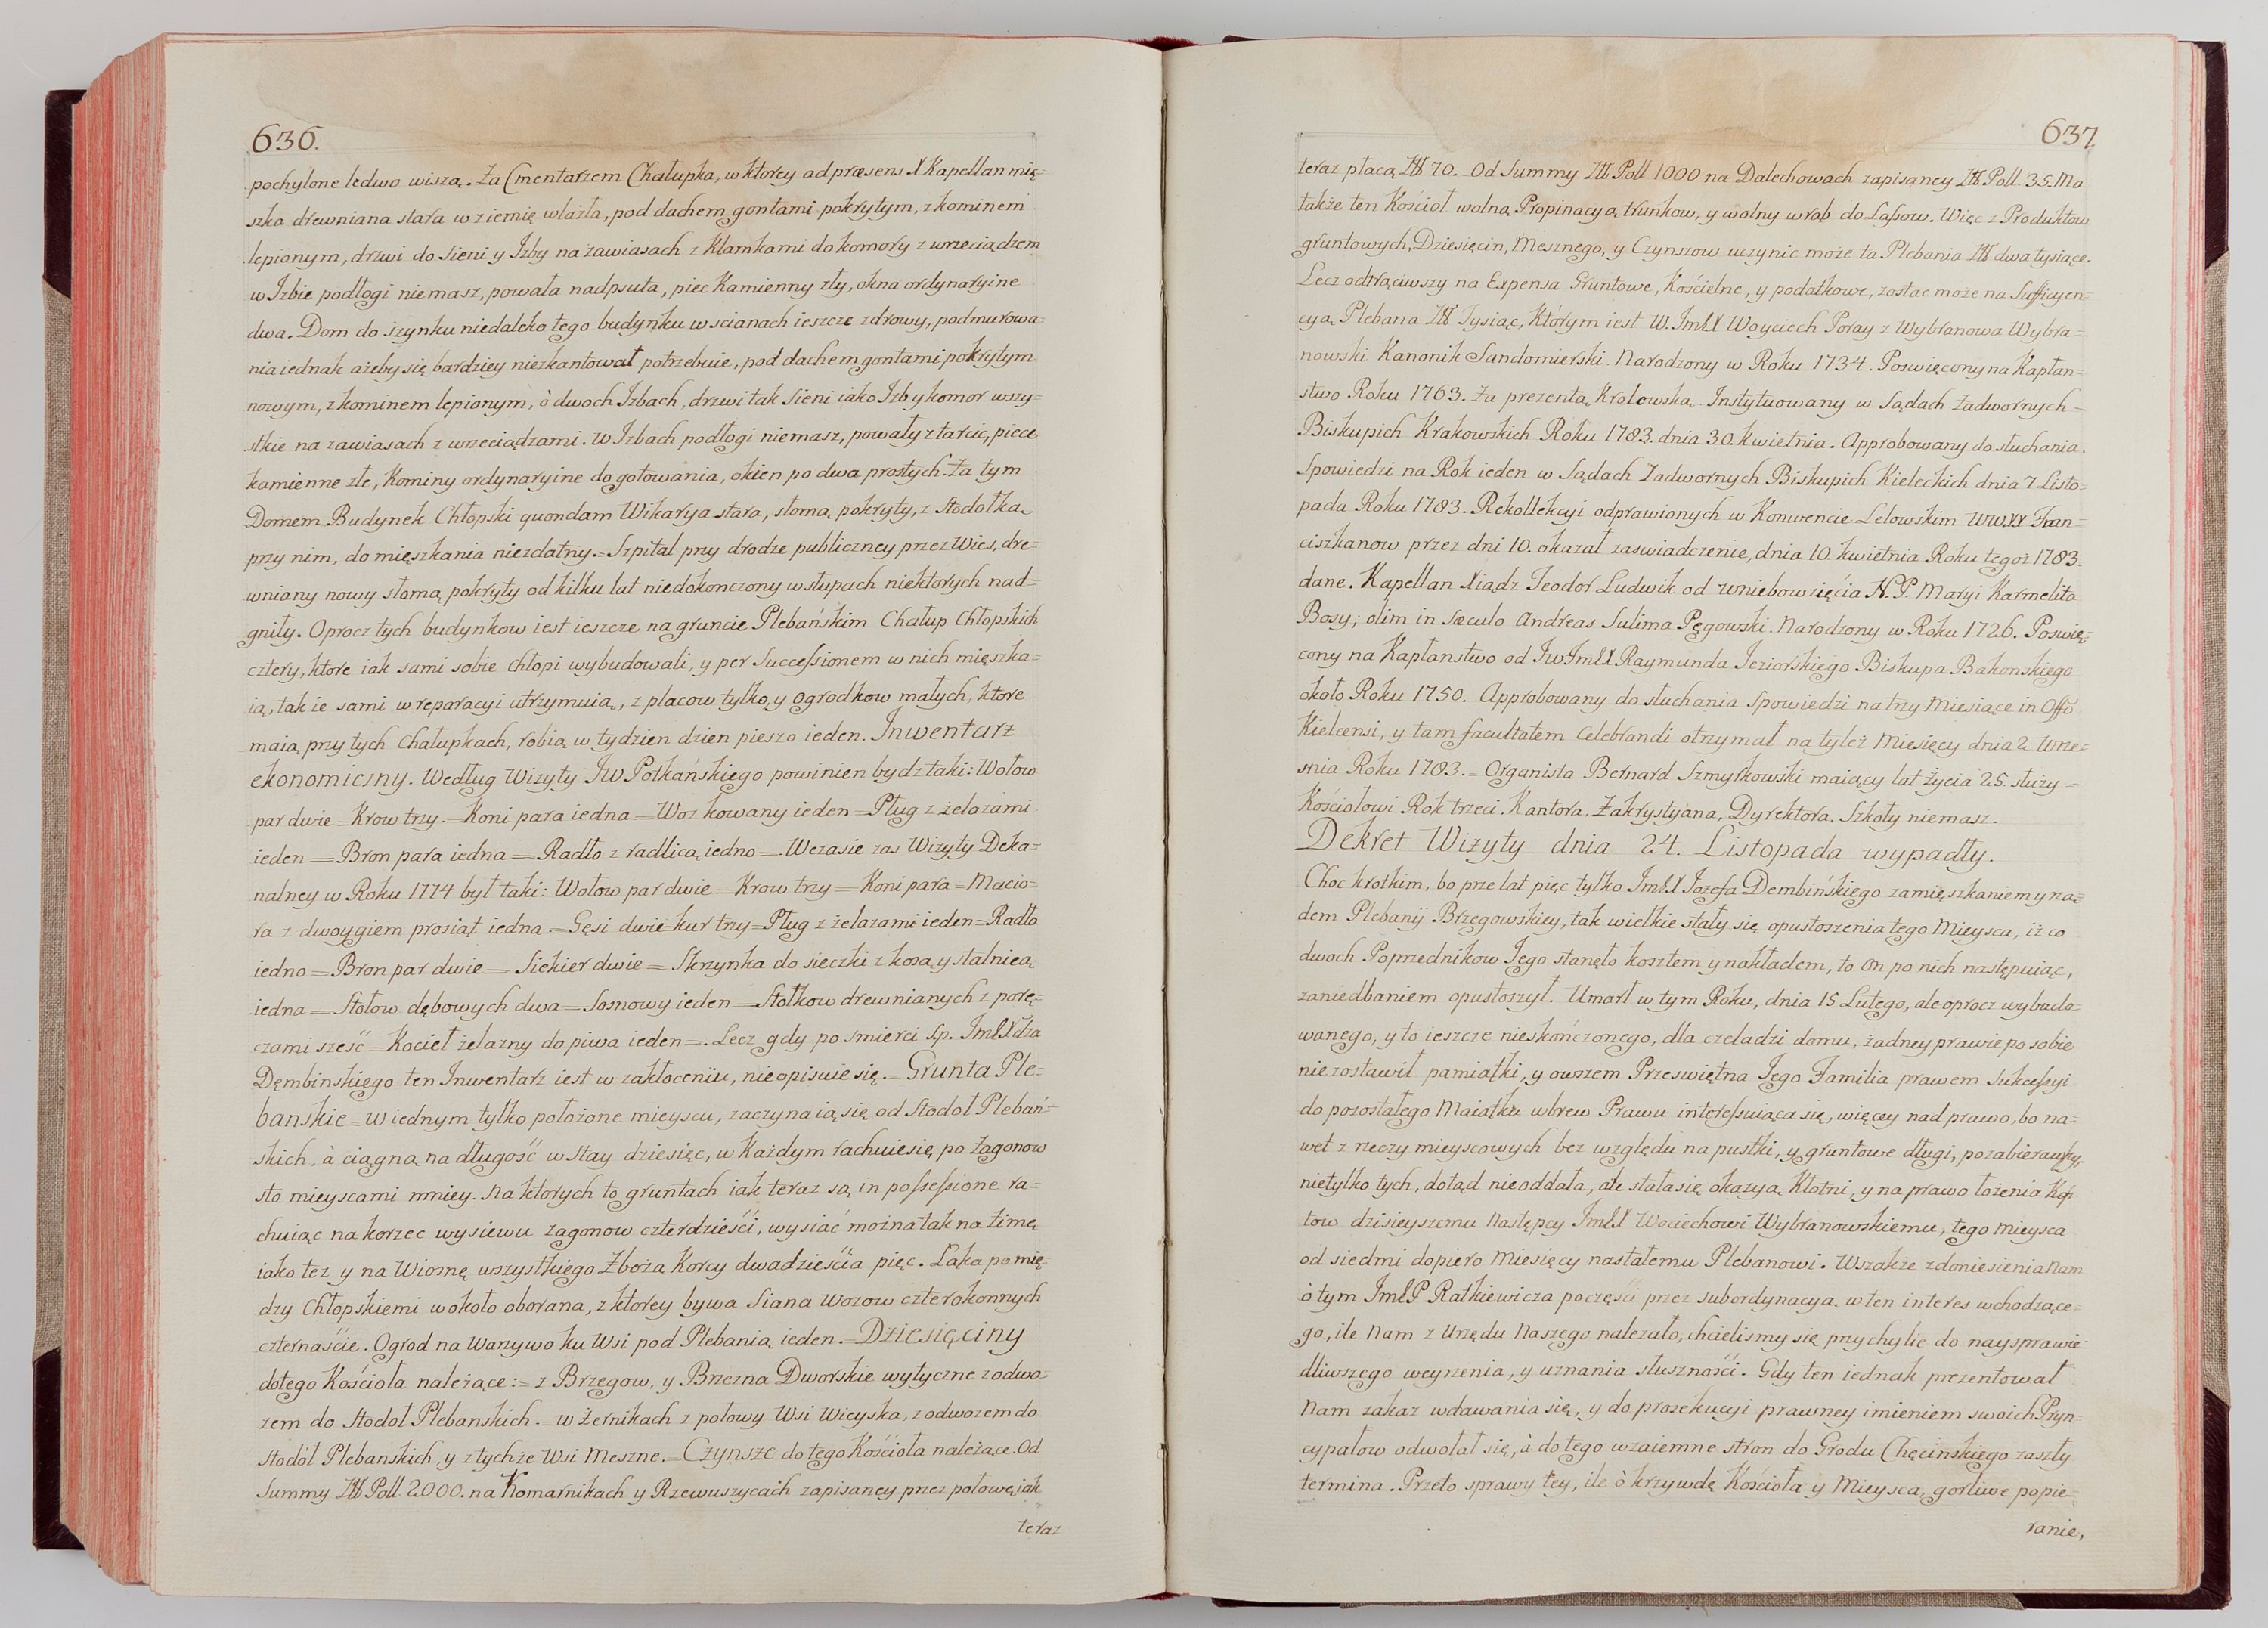 636.
pochylone ledwo wiszą. Za Cmentarzem Chałupka, w ktorey ad præsens X Kapellan mię=
szka drewniana stara w ziemię wlazła, pod dachem gontami pokrytym, z kominem
lepionym, drzwi do Sieni y Izby na zawiasach z Klamkami do komory z wrzeciądzem
w Izbie podłogi niemasz, powała nadpsuta, piec Kamienny zły, okna ordynaryine
dwa. Dom do szynku niedaleko tego budynku w scianach ieszcze zdrowy, podmurowa=
nia iednak ażeby się bardziey niezkantował potrzebuie, pod dachem gontami pokrytym
nowym, z kominem lepionym, ò dwoch Izbach, drzwi tak Sieni iako Izb y komor wszy=
stkie na zawiasach z wrzeciądzami. w Izbach podłogi niemasz, powały z tarcic, piece
kamienne złe, Kominy ordynaryine do gotowania, okien po dwa prostych. Za tym
Domem Budynek Chłopski quondam Wikarya stara, słomą pokryty, z Stodołką
przy nim, do mięszkania niezdatny. = Szpital przy drodze publiczney przez Wies, dre=
wniany nowy słomą pokryty od kilku lat niedokonczony w słupach niektorych nad=
gniły. Oprocz tych budynkow iest ieszcze na gruncie Plebańskim Chałup Chłopskich
cztery, ktore iak sami sobie chłopi wybudowali, y per Successionem w nich mięszka=
ią, tak ie sami w reparacyi utrzymuią, z placow tylko, y ogrodkow małych, ktore
maią przy tych Chałupkach, robią w tydzien dzien pieszo ieden. Inwentarz
ekonomiczny. Według Wizyty JW Potkańskiego powinien bydz taki: Wołow
par dwie = Krow trzy. = Koni para iedna = Woz kowany ieden = Pług z żelazami
ieden = Bron para iedna = Radło z radlicą iedno =. Wczasie zas Wizyty Deka=
nalney w Roku 1774 był taki: Wołow par dwie = Krow trzy = Koni para = Macio=
ra z dwoygiem prosiąt iedna. = Gęsi dwie = kur trzy = Pług z żelazami ieden = Radło
iedno = Bron par dwie = Siekier dwie = Skrzynka do sieczki z kosą, y stalnicą
iedna = Stołow dębowych dwa = Sosnowy ieden = Stołkow drewnianych z porę=
czami sześć = Kocieł żelazny do piwa ieden =. Lecz gdy po smierci Sp. ImEXdza
Dęmbinskiego ten Inwentarz iest w zakłoceniu, nieopisuie się. = Grunta Ple=
banskie = w iednym tylko położone mieyscu, zaczynaią się od Stodoł Plebań=
skich, à ciągną na długość w Stay dziesięc, w Każdym rachuie się po Zagonow
sto mieyscami mniey. Na ktorych to gruntach iak teraz są in possessione ra=
chuiąc na korzec wysiewu zagonow czterdzieści, wysiać można tak na zimę
iako też y na Wiosnę wszystkiego Zboża Korcy dwadzieścia pięc. Łąka pomię=
dzy Chłopskiemi w około oborana, z ktorey bywa Siana Wozow czterokonnych
czternaście. Ogrod na Warzywo ku Wsi pod Plebanią ieden. = Dziesięciny
do tego Kościoła należące: = z Brzegow, y Brzezna Dworskie wytyczne z odwo=
zem do Stodoł Plebanskich. = w Żernikach z połowy Wsi Wieyska, z odwozem do
Stodół Plebanskich, y z tychże Wsi Meszne. = Czynsze do tego Kościoła należące. Od
Summy Złł Poll. 2000. na Komarnikach y Rzewuszycach zapisaney przez połowę, iak
teraz
637.
teraz płacą Złł 70. = Od Summy Złł Poll 1000 na Dalechowach zapisaney Złł Poll. 35. Ma
także ten Kościoł wolną Propinacyą trunkow, y wolny wrąb do Lassow. Więc z Produktow
gruntowych, Dziesięcin, Mesznego, y Czynszow uczynic może ta Plebania Złł dwa tysiące.
Lecz odtrąciwszy na Expensa Gruntowe, Kościelne, y podatkowe, zostac może na Sufficyen=
cyą Plebana Złł Tysiąc, Którym iest W. ImEX Woyciech Poray z Wybranowa Wybra=
nowski Kanonik Sandomierski. Narodzony w Roku 1734. Poswięcony na Kapłan=
stwo Roku 1763. Za prezentą Krolewską Instytuowany w Sądach Zadwornych =
Biskupich Krakowskich Roku 1783. dnia 30. kwietnia. Approbowany do słuchania
Spowiedzi na Rok ieden w Sądach Zadwornych Biskupich Kieleckich dnia 7. Listo=
pada Roku 1783. Rekollekcyi odprawionych w Konwencie Lelowskim WW.XX Fran=
ciszkanow przez dni 10. okazał zaswiadczenie, dnia 10. kwietnia Roku tegoż 1783.
dane. Kapellan Xiądz Teodor Ludwik od wniebowzięcia N.P. Maryi Karmelita
Bosy; olim in sæculo Andreas Sulima Pęgowski. Narodzony w Roku 1726. Poswię=
cony na Kapłanstwo od JwImEX Raymunda Ieziorskiego Biskupa Bakonskiego
około Roku 1750. Approbowany do słuchania Spowiedzi na trzy Miesiące in Offo
Kielcensi, y tam facultatem Celebrandi otrzymał na tyleż Miesięcy dnia 2. Wrze=
snia Roku 1783. = Organista Bernard Szmyrkowski maiący lat życia 25. służy =
Kościołowi Rok trzeci. Kantora, Zakrystyana, Dyrektora, Szkoły niemasz.
Dekret Wizyty dnia 24. Listopada wypadły.
Choc krotkim, bo prze lat pięc tylko ImEX Iozefa Dembińskiego zamięszkaniem y na=
dem Plebanij Brzegowskiey, tak wielkie stały się opustoszenia tego Mieysca, iż co
dwoch Poprzednikow Iego stanęło kosztem y nakładem, to on po nich następuiąc,
zaniedbaniem opustoszył. Umarł w tym Roku, dnia 15 Lutego, ale oprocz wybudo=
wanego, y to ieszcze nieskończonego, dla czeladzi domu, żadney prawie po sobie
niezostawił pamiątki, y owszem Przeswiętna Iego Familia prawem Sukcessyi
do pozostałego Maiątku wbrew Prawu interessuiąca się, więcey nad prawo, bo na=
wet z rzeczy mieyscowych bez względu na pustki, y gruntowe długi, pozabierawszy,
nietylko tych, dotąd nieoddała, ale stała się okazyą Kłotni, y na prawo łożenia Kosz
tow dzisieyszemu Następcy ImEX Wociechowi Wybranowskiemu, tego mieysca
od siedmi dopiero Miesięcy nastałemu Plebanowi. Wszakże z doniesienia Nam
ò tym ImEP Ratkiewicza poczęści przez subordynacyą w ten interes wchodzące=
go, ile Nam z Urzędu Naszego należało, chcieliśmy się przychylic do naysprawie=
dliwszego weyrzenia, y uznania słuszności. Gdy ten iednak prezentował
Nam zakaz wdawania się, y do prozekucyi prawney imieniem swoich Pryn=
cypałow odwołał się, à do tego wzaiemne stron do Grodu Chęcinskiego zaszły
termina. Przeto sprawy tey, ile ò krzywdę Kościoła y Mieysca, gorliwe popie=
ranie,